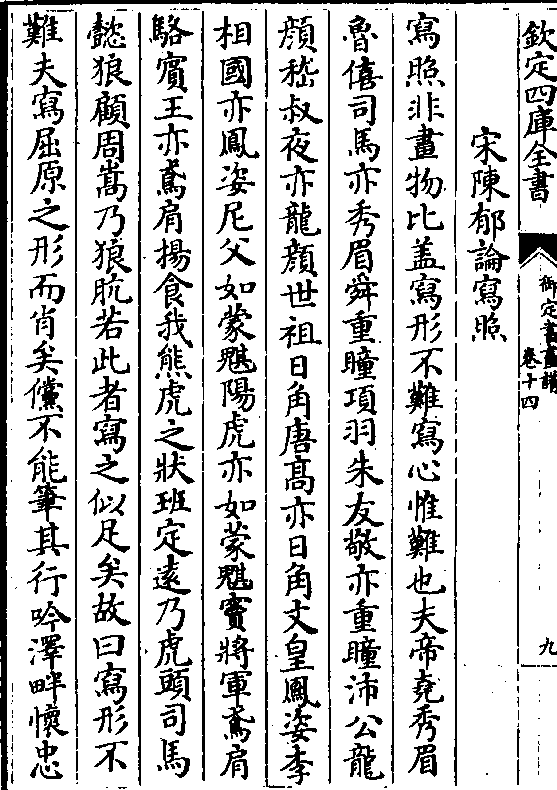 欽定四庫全書
御定書畫譜
卷十四
九
宋陳郁論寫照
寫照非畫物比盖寫形不難寫心惟難也夫帝堯秀眉
魯僖司馬亦秀眉舜重瞳項羽朱友敬亦重瞳沛公龍
顔嵇叔夜亦龍顔世祖日角唐髙亦日角文皇鳳姿李
相國亦鳳姿尼父如蒙魌陽虎亦如蒙魌竇將軍鳶肩
駱賓王亦鳶肩揚食我熊虎之狀班定遠乃虎頭司馬
懿狼顧周嵩乃狼肮若此者寫之似足矣故曰寫形不
難夫寫屈原之形而肖矣儻不能筆其行吟澤畔懷忠